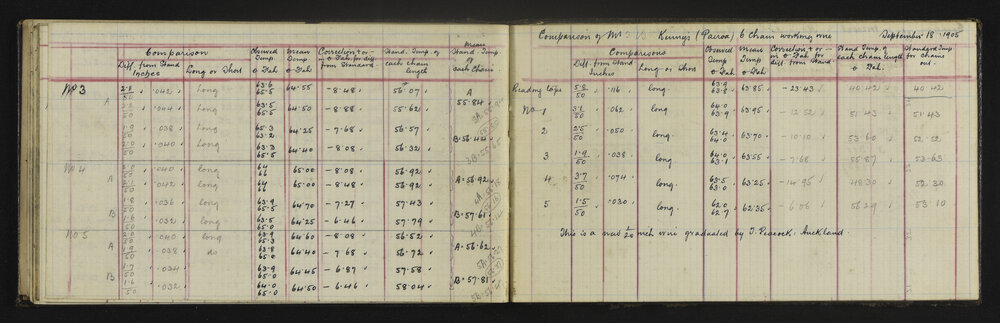 Comparison
Diff. from Stand
Inches
Long or Short
Observed
Temp
o Fah.
Mean
Temp
o Fah
Correction + or -
in o Fah for diff
from Standard
Stand. Temp. of
each chain
length
Mean
Stand. Temp.
of
each Chain
No 3
A
2.1/50 " .042 " Long 63.6 65.5 64.55 - 8.48 " 56.07 " A
2.2/50 " .044 " Long 63.5 65.5 64.50 - 8.88 " 55.62 " 55.84
1.9/50 " .038 " Long 65.3 63.2 64.25 - 7.68 " 56.57 " B. 56.44
2.0/50 " .040 " Long 63.3 65.5 64.40 - 8.08 " 56.32 "
No 4
A
2.0/50 " .040 " long 64 66 65.00 - 8.08 " 56.92 " A. 56.92
2.1/50 " .042 " long 64 66 65.00 - 8.48 " 56.92 "
B
1.8/50 " .036 " long 63.9 65.5 64.70 - 7.27 " 57.43 " B. 57.61
1.6/50 " .032 " long 63.5 65.0 64.25 - 6.46 " 57.79 "
No 5
A
2.0/50 " .040 " long 63.9 65.3 64.60 - 8.08 " 56.52 " A. 56.62
1.9/50 " .038 " do 63.8 65.0 64.40 - 7.68 " 56.72 "
B
1.7/50 " .034 " 63.9 65.0 64.45 - 6.87 " 57.58 "
1.6/50 " .032 " 64.0 65.0 64.50 - 6.46 " 58.04 " B. 57.81
Comparison of Mr Kenny's (Paeroa) 6 Chain working wire September 18 1905
Comparisons
Diff. from Stand
Inches
Long or Short
Observed
Temp
o Fah.
Mean
Temp
o Fah
Correction + or -
in o Fah for
diff. from Stand.
Stand Temp. of
each chain length
o Fah.
Standard Temp
for Chains
out.
Reading tape 5.8/50 " .116 " long 63.9 63.8 63.85 - 23.43 " 40.42 " 40.42
No 1 3.1/50 " .062 long 64.0 63.9 63.95 - 12.52 51.43 51.43
2 2.5/50 " .050 long. 63.4 64.0 63.70 - 10.10 53.60 52.52
3 1.9/50 " .038 long 64.0 63.1 63.55 - 7.68 55.87 53.63
4 3.7/50 " .074 long. 63.5 63.0 63.25 - 14.95 48.30 52.30
5 1.5/50 " .030 long. 62.0 62.7 62.35 - 6.06 56.29 53.10
This is a new 1/20 inch wire graduated by T. Peacock: Auckland.